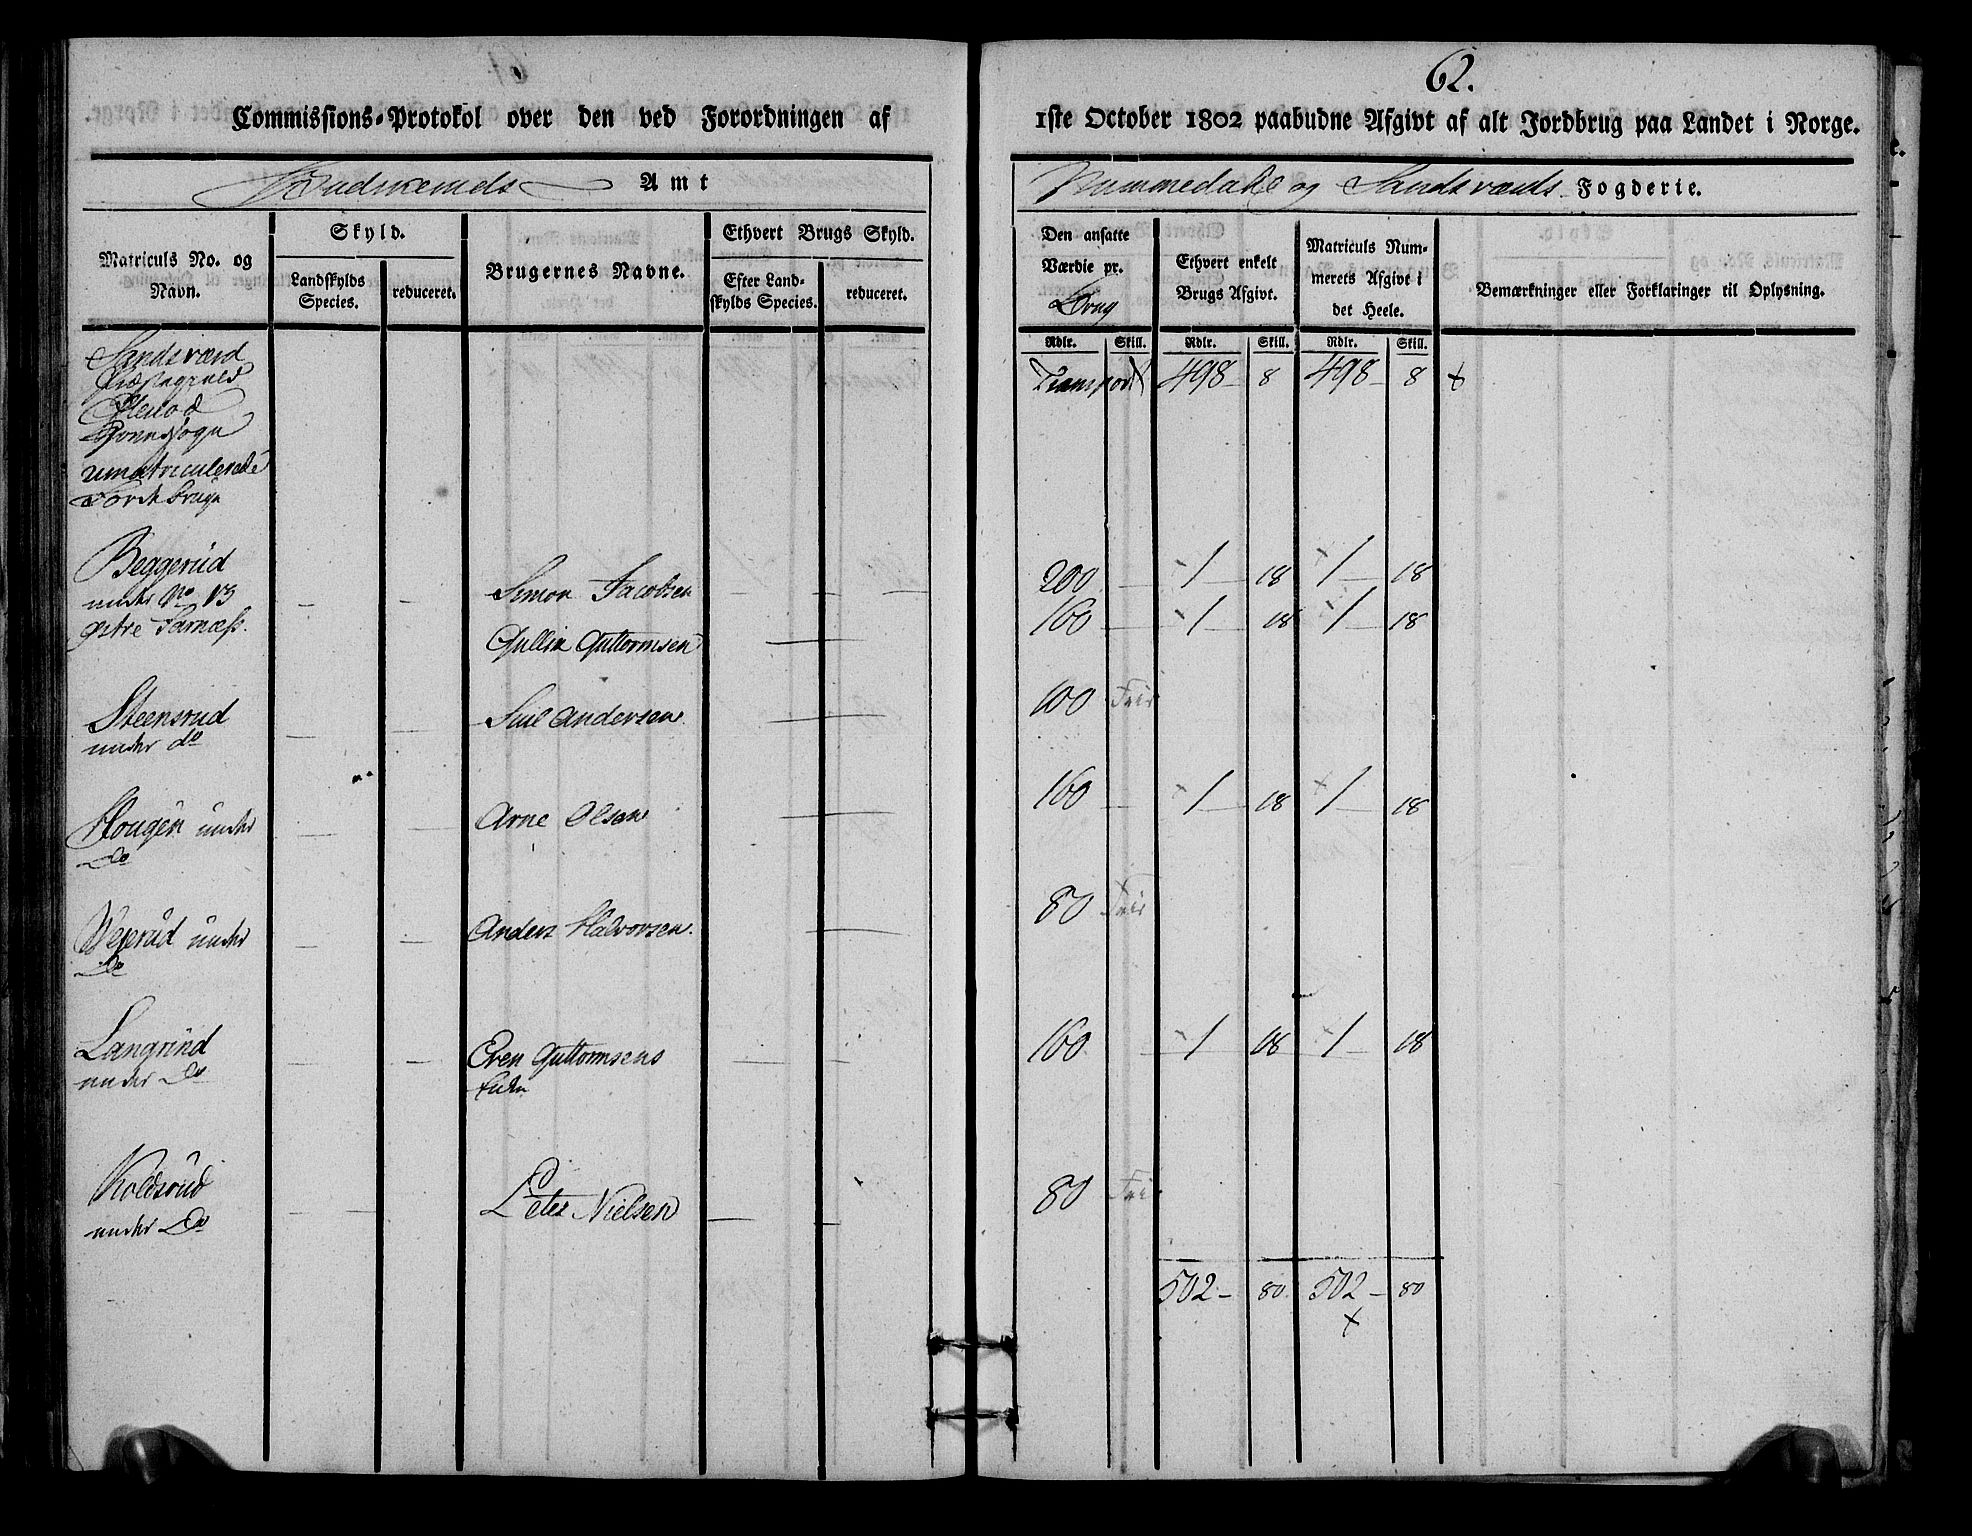 62.
Commissions-Protokol over den ved Forordningen af 1ste October 1802 paabudne Afgivt af alt Jordbrug paa Landet i Norge.
Budskeruds Amt
Nummedahl og Sandsværds Fogderie.
Matriculs No. og Navn.
Skyld.
Landskylds Species.
reduceret.
Brugernes Navne.
Ethvert Brugs Skyld.
Efter Landskylds Species.
reduceret.
Den ansatte Værdie pr. Brug
Ethvert enkelt Brugs Afgivt.
Matriculs Nummerets Afgivt i det Heele.
Bemærkninger eller Forklaringer til Oplysning.
Rdlr. Skill. Rdlr. Skill. Rdlr. Skill.
Sandsværd
Præstegield
Efterlod
Sognesogn
umatriculerede
Jordbruge
Transport 498 - 8 498 - 8 +
Beggerud
under No 13
østre Jarnæss.
— — Simon Jacobsen — — — 200 — 1 — 18 1 — 18
Gullik Guttormsen — 160 — 1 — 18 1 — 18
Steensrud
under do — — Siul Andersen — 100 Frie
Hougen under
Do — — Arne Olsen — 160 — 1 — 18 1 — 18
Vejerud under
Do — — Anders Halvorsen. — 80 Frie
Langrind
under Do — — Even Guttormsens
Enke — — 160 — 1 — 18 1 — 18
Koldsrud
under Do — — Peter Nielsen — — 80 Frie
502 - 80 502 - 80
+